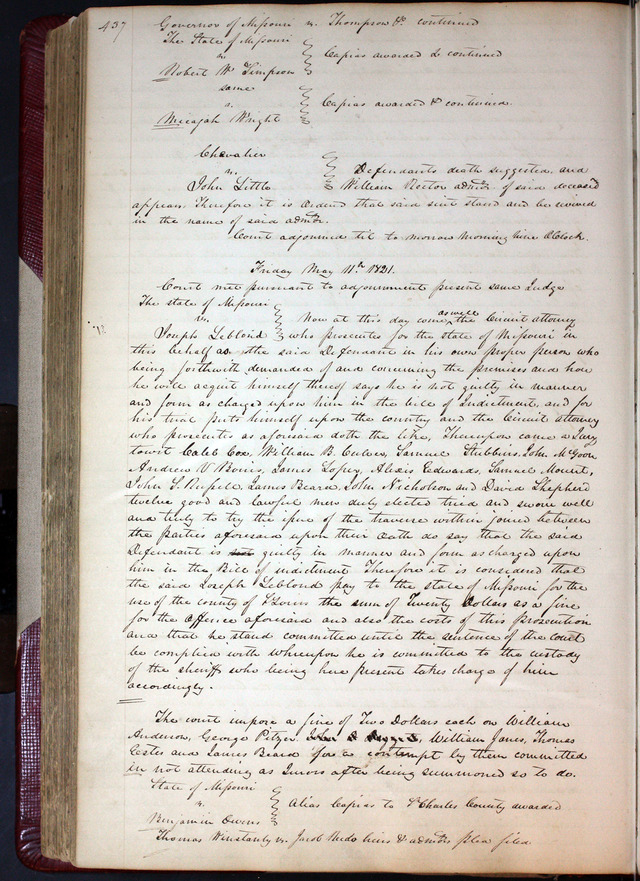 437
Governor of Missouri vs. Thompson &c. continued
The State of Missouri
vs.
Robert W Simpson
Capias awarded & continued
same
vs.
Micajah Wright
Capias awarded & continued.
Chevalier
vs.
John Little
Defendants death suggested, and
William Rector admr. of said deceased
appears, Therefore it is Ordered that said suit stand and be revived
in the name of said admtr.
Court adjourned til to morrow Morning nine OClock.
Friday May 11th 1821.
Court met pursuant to adjournment present same Judge
The state of Missouri
vs.
Joseph Leblond
Now at this day come as well the Circuit attorney
who prosecutes for the state of Missouri in
this behalf as the said Defendant in his own proper person who
being forthwith demanded of and concerning the premises and how
he will acquit himself thereof says he is not guilty in manner
and form as charged upon him in the bill of Indictment, and for
his trial puts himself upon the country and the Circuit attorney
who prosecutes as aforesaid doth the like, Thereupon came a Jury
towit Caleb Cox, William B. Culver, Samuel Stubbins, John McGoon
Andrew V Bonis, James Lopez, Alexis Edwards, Samuel Mount,
John S. Russell, James Beard, John Nicholson and David Shepherd
twelve good and lawful men duly elected tried and sworn well
and truly to try the issue of the traverse within joined between
the parties aforesaid upon their Oath do say that the said
Defendant is guilty in manner and form as charged upon
him in the Bill of indictment Therefore it is considered that
the said Joseph Leblond pay to the state of Missouri for the
use of the county of St Louis the sum of Twenty Dollars as a fine
for the offence aforesaid and also the costs of this prosecution
and that he stand committed until the sentence of the court
be complied with whereupon he is committed to the custody
of the sheriff who being here present takes charge of him
accordingly.
The court impose a fine of Two Dollars each on William
Anderson, George Pitzer, William Janes, Thomas
Estes and James Beard for a contempt by them committed
in not attending as Jurors after being summoned so to do.
State of Missouri
vs.
Benjamin Owens
Alias Capias to St Charles County awarded
Thomas Winstanly vs. Jacob heirs & admtrs plea filed